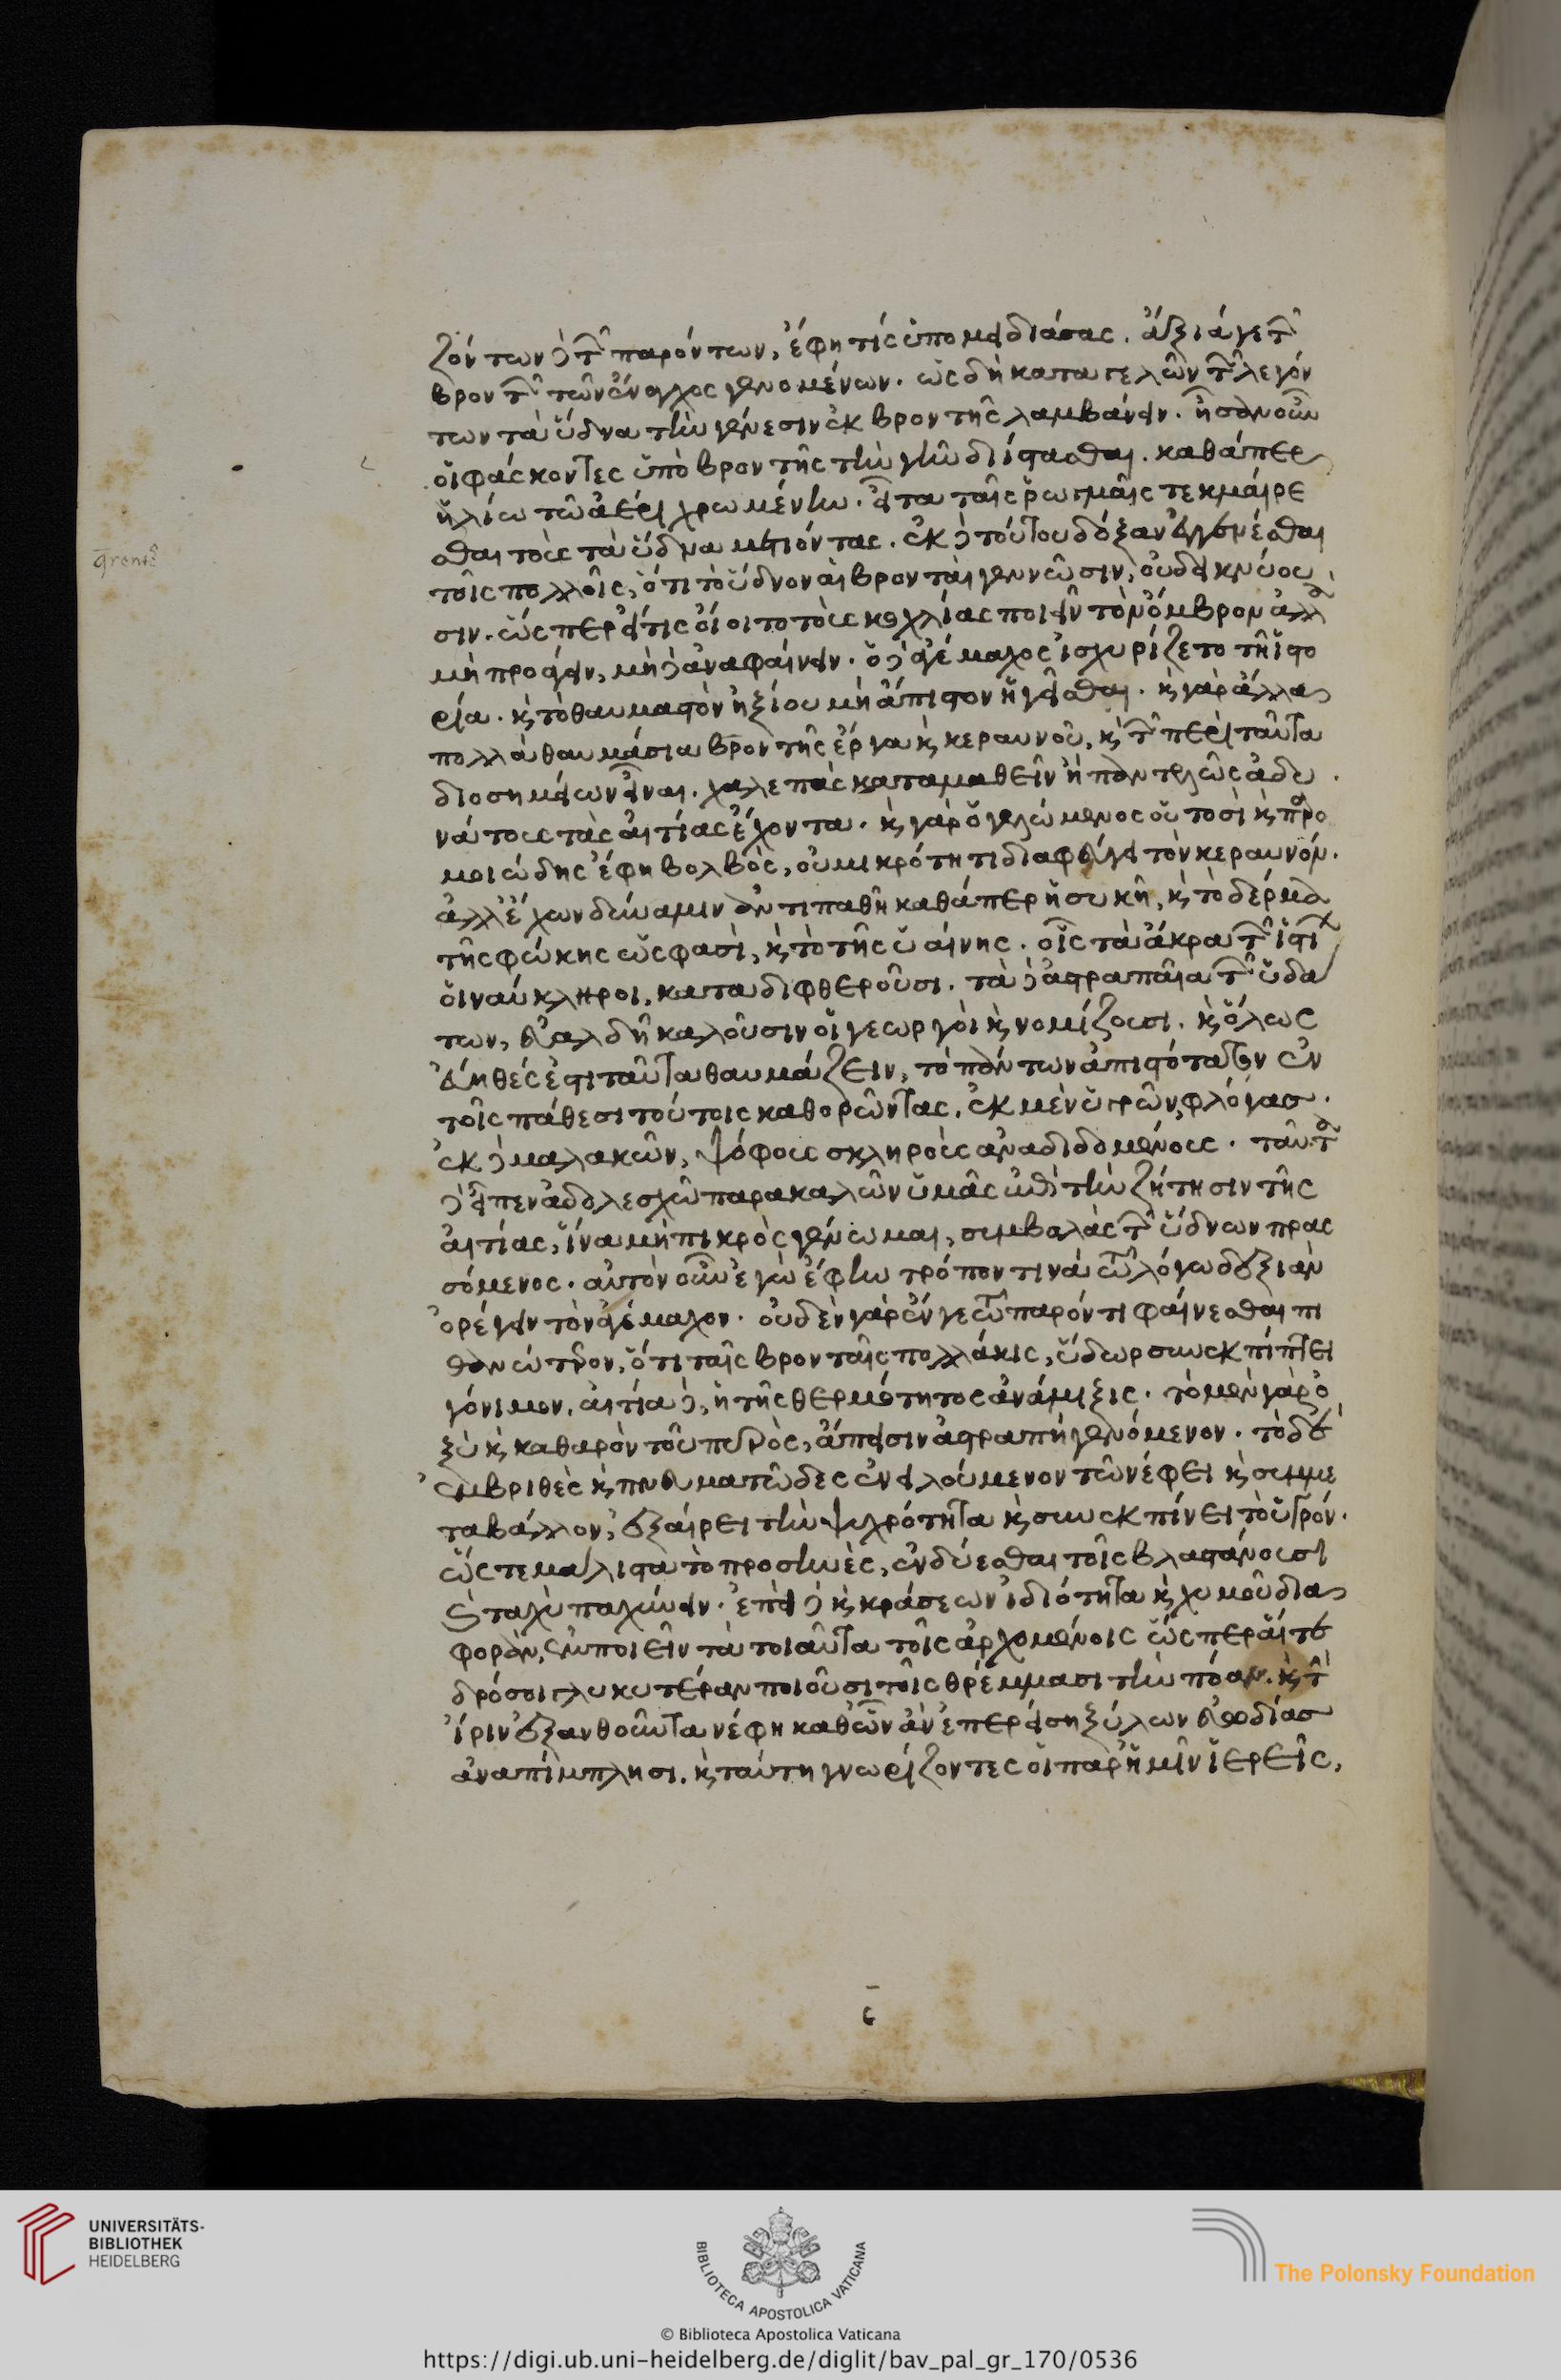 ζόντων δὲ τῶν παρόντων, ἔφη τίς ὑπομειδιάσας. ἄξιά γε τῶν
βροντῶν τῶν ἔναγχος γενομένων. ὡς δὴ καταγελῶν τῶν λεγόν
των τὰ ὕδνα τὴν γένεσιν ἐκ βροντῆς λαμβάνειν. ἦσαν οὖν
οἱ φάσκοντες ὑπὸ βροντῆς τὴν γῆν διίστασθαι. καθάπερ
ἡλίῳ τῶ ἀέρι χρωμένην. εἶτα ταῖς ῥωγμαῖς τεκμαίρε
σθαι τοὺς τὰ ὕδνα μετιόντας. ἐκ δὲ τούτου δόξαν ἐγγενέσθαι
τοῖς πολλοῖς, ὅτι τὸ ὕδνον αἱ βρονταὶ γεννῶσιν, οὐ δεικνύου
σιν. ὥσπερ εἴ τις οἴοιτο τοὺς κοχλίας ποιεῖν τὸν ὄμβρον ἀλλὰ
μὴ προάγειν, μὴ δὲ ἀναφαίνειν. ὁ δὲ ἀγέμαχος ἰσχυρίζετο τῆ ἱστο
ρία. καὶ τὸ θαυμαστὸν ἠξίου μὴ ἄπιστον ἡγεῖσθαι. καὶ γὰρ ἄλλα
πολλὰ θαυμάσια βροντῆς ἔργα καὶ κεραυνοῦ, καὶ τῶν περὶ ταῦτα
διοσημείων εἶναι. χαλεπὰς καταμαθεῖν ἢ παντελῶς ἀδυ
νάτους τὰς αἰτίας ἔχοντα. καὶ γὰρ ὁ γελώμενος οὑτοσὶ καὶ παρο
μοιώδης ἔφη βολβὸς, οὐ μικρότητι διαφεύγει τὸν κεραυνόν.
ἀλλ' ἔχων δύναμιν ἀντιπαθῆ καθάπερ ἡ συκῆ, καὶ τὸ δέρμα
τῆς φώκης ὥς φασὶ, καὶ τὸ τῆς ὑαίνης. οἷς τὰ ἄκρα τῶν ἱστίων
οἱ ναύκληροι, καταδιφθεροῦσι. τὰ δὲ ἀστραπαῖα τῶν ὑδά
των, εὐαλδῆ καλοῦσιν οἱ γεωργοὶ καὶ νομίζουσι. καὶ ὅλως
εὔηθές ἐστι ταῦτα θαυμάζειν, τὸ πάντων ἀπιστότατον ἐν
τοῖς πάθεσι τούτοις καθορῶντας, ἐκ μὲν ὑγρῶν, φλόγας.
ἐκ δὲ μαλακῶν, ψόφους σκληροὺς ἀναδιδομένους. ταῦτα
δὲ εἶπεν ἀδολεσχῶ παρακαλῶν ὑμᾶς ἐπὶ τὴν ζήτησιν τῆς
αἰτίας, ἵνα μὴ πικρὸς γένωμαι, συμβολὰς τῶν ὕδνων πρας
σόμενος. αὐτὸν οὖν ἐγὼ ἔφην τρόπον τινὰ τῶ λόγω δεξιὰν
ὀρέγειν τὸν ἀγέμαχον. οὐδὲν γὰρ ἔν γε τῶ παρόντι φαίνεσθαι πι
θανώτερον, ὅτι ταῖς βρονταῖς πολλάκις, ὕδωρ συνεκπίπτει
γόνιμον. αἰτία δὲ, ἡ τῆς θερμότητος ἀνάμιξις. τὸ μὲν γὰρ ὀ
ξὺ καὶ καθαρὸν τοῦ πυρὸς, ἄπεισιν ἀστραπὴ γενόμενον. τὸ δὲ
ἐμβριθὲς καὶ πνευματῶδες ἐνειλούμενον τῶ νέφει καὶ συμμε
ταβάλλον, ἐξαίρει τὴν ψυχρότητα καὶ συνεκπίνει τὸ ὑγρόν.
ὥς τε μάλιστα τὸ προσηνὲς, ἐνδύεσθαι τοῖς βλαστάνουσι
καὶ ταχὺ παχύνειν. ἐπεὶ δὲ καὶ κράσεων ἰδιότητα καὶ χυμοῦ δια
φορὰν, ἐμποιεῖν τὰ τοιαῦτα τοῖς ἀρχομένοις ὥσπερ αἵ τε
δρόσοι γλυκυτέραν ποιοῦσι τοῖς θρέμμασι τὴν πόαν. καὶ τὰ
ἶριν ἐξανθοῦντα νέφη καθ' ὧν ἂν ἐπερείση ξύλων εὐωδίας
ἀναπίμπλησι. καὶ ταύτη γνωρίζοντες οἱ παρ' ἡμῖν ἱερεῖς,
ϛ
UNIVERSITÄTS-
BIBLIOTHEK
HEIDELBERG
BIBLIOTECA APOSTOLICA VATICANA
The Polonsky Foundation
© Biblioteca Apostolica Vaticana
https://digi.ub.uni-heidelberg.de/diglit/bav_pal_gr_170/0536